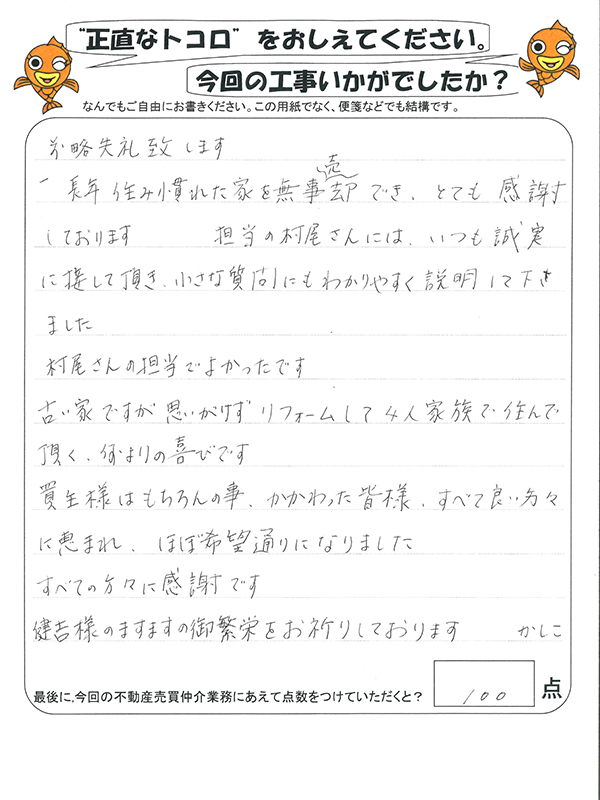 "正直なトコロ"をおしえてください。
今回の工事いかがでしたか？
なんでもご自由にお書きください。この用紙でなく、便箋などでも結構です。
前略失礼致します
長年住み慣れた家を無事売却でき、とても感謝
しております　担当の村尾さんには、いつも誠実
に接して頂き、小さな質問にもわかりやすく説明して下さ
ました
村尾さんの担当でよかったです
古い家ですが思いがけずリフォームして4人家族で住んで
頂く、何よりの喜びです
買主様はもちろんの事、かかわった皆様、すべて良い方々
に恵まれ、ほぼ希望通りになりました
すべての方々に感謝です
健吉様のますますの御繁栄をお祈りしております　かしこ
最後に,今回の不動産売買仲介業務にあえて点数をつけていただくと？ 100 点